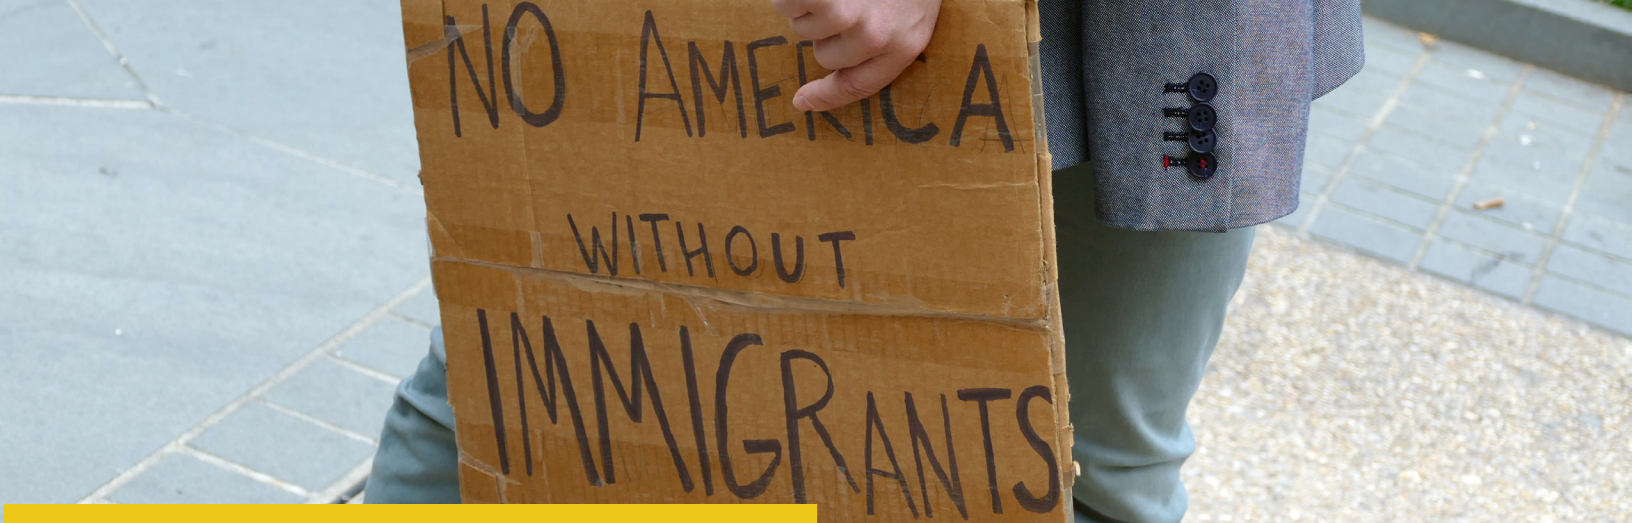 NO AMERICA
WITHOUT
IMMIGRANTS